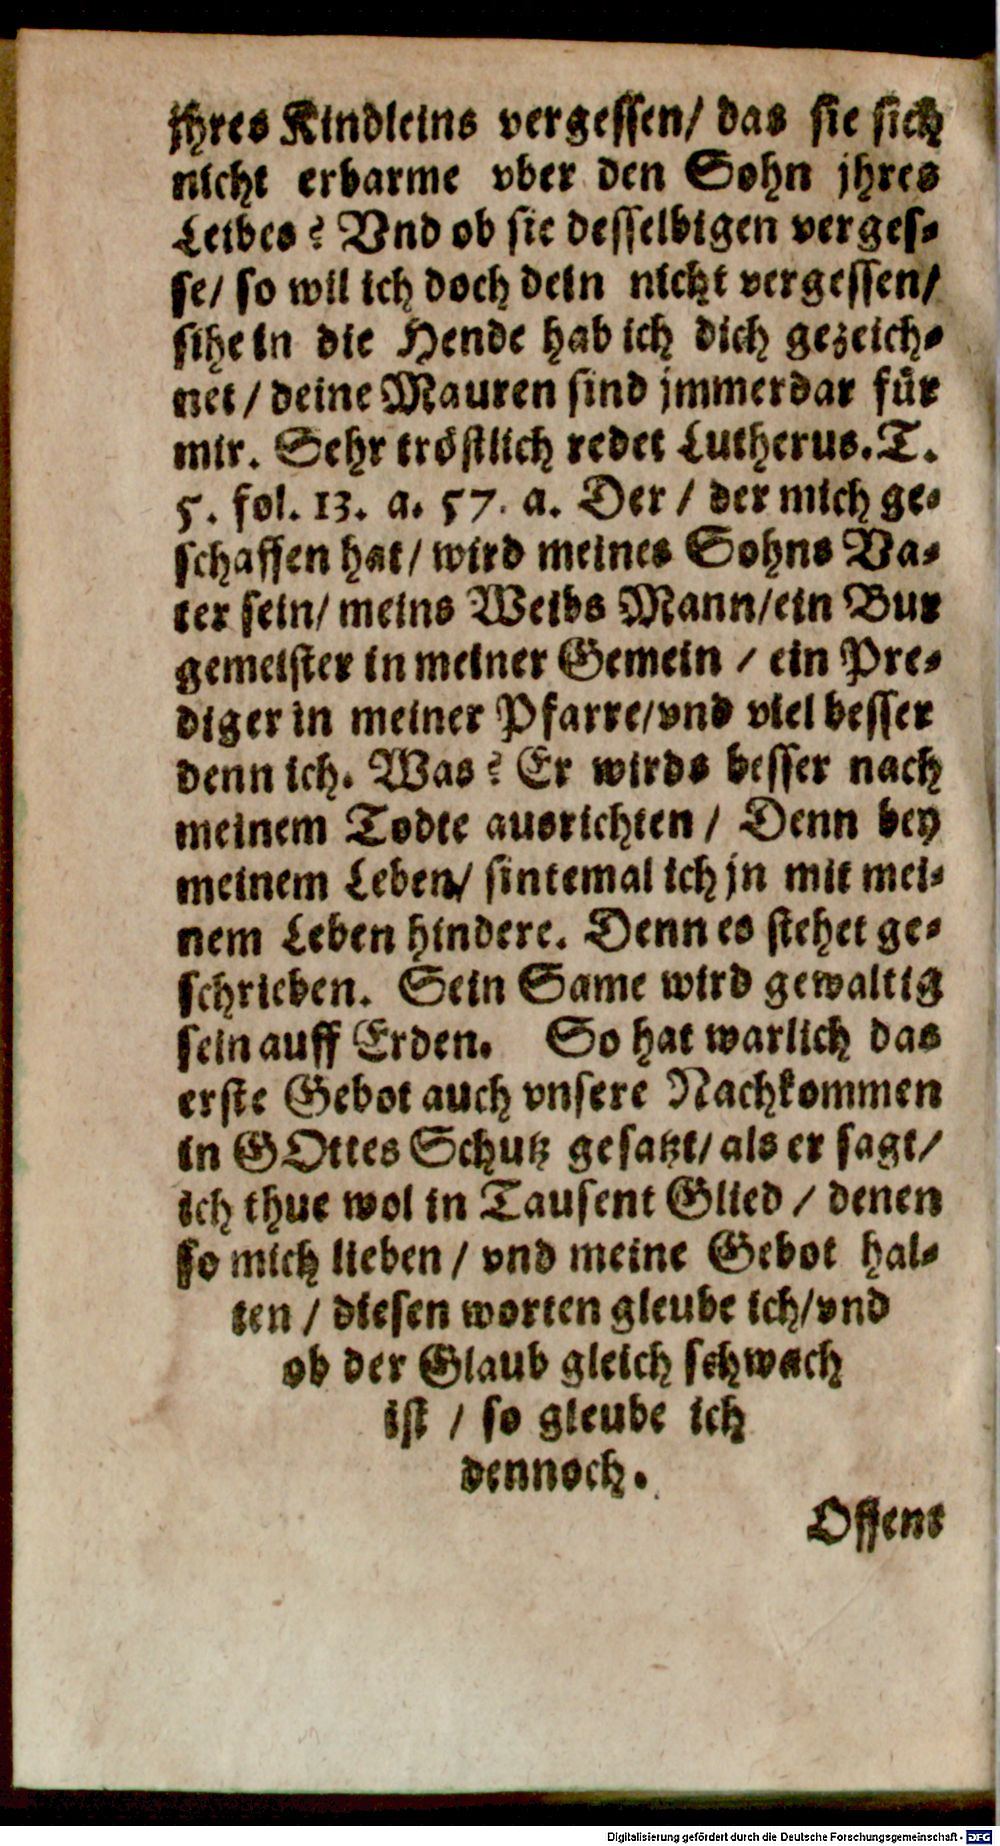 jhres Kindleins vergessen/ das sie sich
nicht erbarme vber den Sohn jhres
Leibes? Vnd ob sie desselbigen verges-
se/ so wil ich doch dein nicht vergessen/
sihe in die Hende hab ich dich gezeich-
net / deine Mauren sind jmmerdar für
mir. Sehr tröstlich redet Lutherus. T.
5. fol. 13. a. 57. a. Der / der mich ge-
schaffen hat/ wird meines Sohns Va-
ter sein/ meins Weibs Mann/ein Bur
gemeister in meiner Gemein / ein Pre-
diger in meiner Pfarre/vnd viel besser
denn ich. Was? Er wirds besser nach
meinem Todte ausrichten / Denn bey
meinem Leben/ sintemal ich jn mit mei-
nem Leben hindere. Denn es stehet ge-
schrieben. Sein Same wird gewaltig
sein auff Erden. So hat warlich das
erste Gebot auch vnsere Nachkommen
in GOttes Schutz gesatzt/ als er sagt/
ich thue wol in Tausent Glied / denen
so mich lieben / vnd meine Gebot hal-
ten / diesen worten gleube ich/vnd
ob der Glaub gleich schwach
ist / so gleube ich
dennoch.
Offent
Digitalisierung gefördert durch die Deutsche Forschungsgemeinschaft - DFG